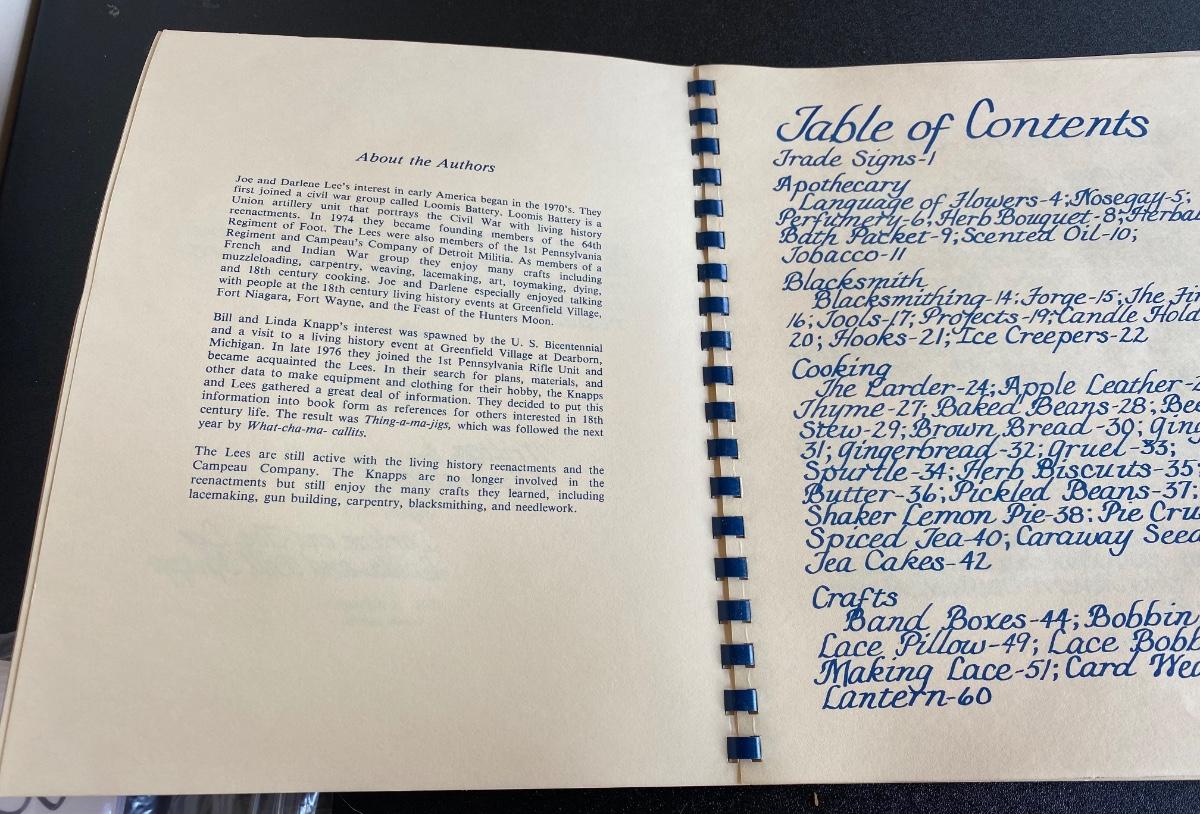 About the Authors
Joe and Darlene Lee's interest in early America began in the 1970's. They
first joined a civil war group called Loomis Battery. Loomis Battery is a
Union artillery unit that portrays the Civil War with living history
reenactments. In 1974 they became founding members of the 64th
Regiment of Foot. The Lees were also members of the 1st Pennsylvania
Regiment and Campeau's Company of Detroit Militia. As members of a
French and Indian War group they enjoy many crafts including
muzzleloading, carpentry, weaving, lacemaking, art, toymaking, dying,
and 18th century cooking. Joe and Darlene especially enjoyed talking
with people at the 18th century living history events at Greenfield Village,
Fort Niagara, Fort Wayne, and the Feast of the Hunters Moon.
Bill and Linda Knapp's interest was spawned by the U. S. Bicentennial
and a visit to a living history event at Greenfield Village at Dearborn,
Michigan. In late 1976 they joined the 1st Pennsylvania Rifle Unit and
became acquainted the Lees. In their search for plans, materials, and
other data to make equipment and clothing for their hobby, the Knapps
and Lees gathered a great deal of information. They decided to put this
information into book form as references for others interested in 18th
century life. The result was Thing-a-ma-jigs, which was followed the next
year by What-cha-ma- callits.
The Lees are still active with the living history reenactments and the
Campeau Company. The Knapps are no longer involved in the
reenactments but still enjoy the many crafts they learned, including
lacemaking, gun building, carpentry, blacksmithing, and needlework.
Table of Contents
Trade Signs-1
Apothecary
Language of Flowers-4; Nosegay-5;
Perfumery-6; Herb Bouquet-8; Herba
Bath Packet-9; Scented Oil-10;
Tobacco-11
Blacksmith
Blacksmithing-14; Forge-15; The Fi
16; Tools-17; Projects-19; Candle Hold
20; Hooks-21; Ice Creepers-22
Cooking
The Larder-24; Apple Leather-2
Thyme-27; Baked Beans-28; Bee
Stew-29; Brown Bread-30; Ging
31; Gingerbread-32; Gruel-33;
Spurtle-34; Herb Biscuits-35;
Butter-36; Pickled Beans-37;
Shaker Lemon Pie-38; Pie Cru
Spiced Tea-40; Caraway Seed
Tea Cakes-42
Crafts
Band Boxes-44; Bobbin
Lace Pillow-49; Lace Bobb
Making Lace-51; Card Wea
Lantern-60